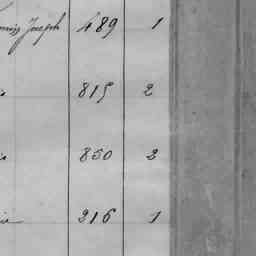 Joseph 489 1
815 2
850 2
216 1